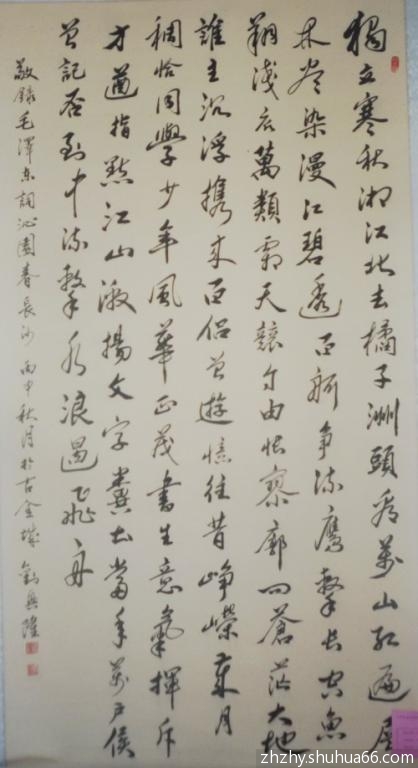 獨立寒秋湘江北去橘子洲頭看萬山紅遍層
林尽染漫江碧透百舸争流鷹擊長空魚
翔淺底萬類霜天競自由悵寥廓问蒼茫大地
誰主沉浮携来百侣曾遊憶往昔崢嶸歲月
稠恰同學少年風華正茂書生意氣揮斥
方遒指點江山激揚文字糞土當年萬户侯
曾記否到中流擊水浪遏飛舟
敬録毛澤東詞沁園春長沙 丙申秋月於古金城
zhzhy.shuhua66.com